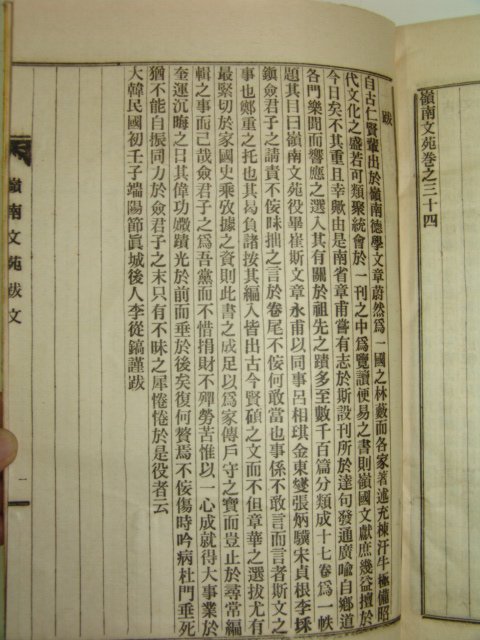 嶺南文苑卷之三十四
跋
自古仁賢輩出於嶺南德學文章蔚然爲一國之林藪而各家著述充棟汗牛極備昭
代文化之盛若可類聚統會於一刊之中爲覽讀便易之書則嶺國文獻庶幾益擅於
今日矣不其重且幸歟由是南省章甫嘗有志於斯設刊所於達句發通廣喩自鄕道
各門樂聞而響應之選入其有關於祖先之蹟多至數千百篇分類成十七卷爲一帙
題其目曰嶺南文苑役畢崔斯文章永甫以同事呂相琪金東燮張炳驥宋貞根李埰
鎭僉君子之請責不侫昧拙之言於卷尾不侫何敢當也事係不敢言而言者斯文之
事也鄭重之托也其曷負諸按其編入皆出古今賢碩之文而不但章華之選拔尤有
最緊切於家國史乘攷據之資則此書之成足以爲家傳戶守之寶而豈止於尋常編
輯之事而己哉僉君子之爲吾黨而不惜捐財不殫勞苦惟以一心成就得大事業於
奎運沉晦之日其偉功嫐蹟光於前而垂於後矣復何贅焉不侫傷時吟病杜門垂死
猶不能自振同力於僉君子之末只有不昧之犀惓惓於是役者云
大韓民國初壬子端陽節眞城後人李從鎬謹跋
嶺南文苑跋文
一